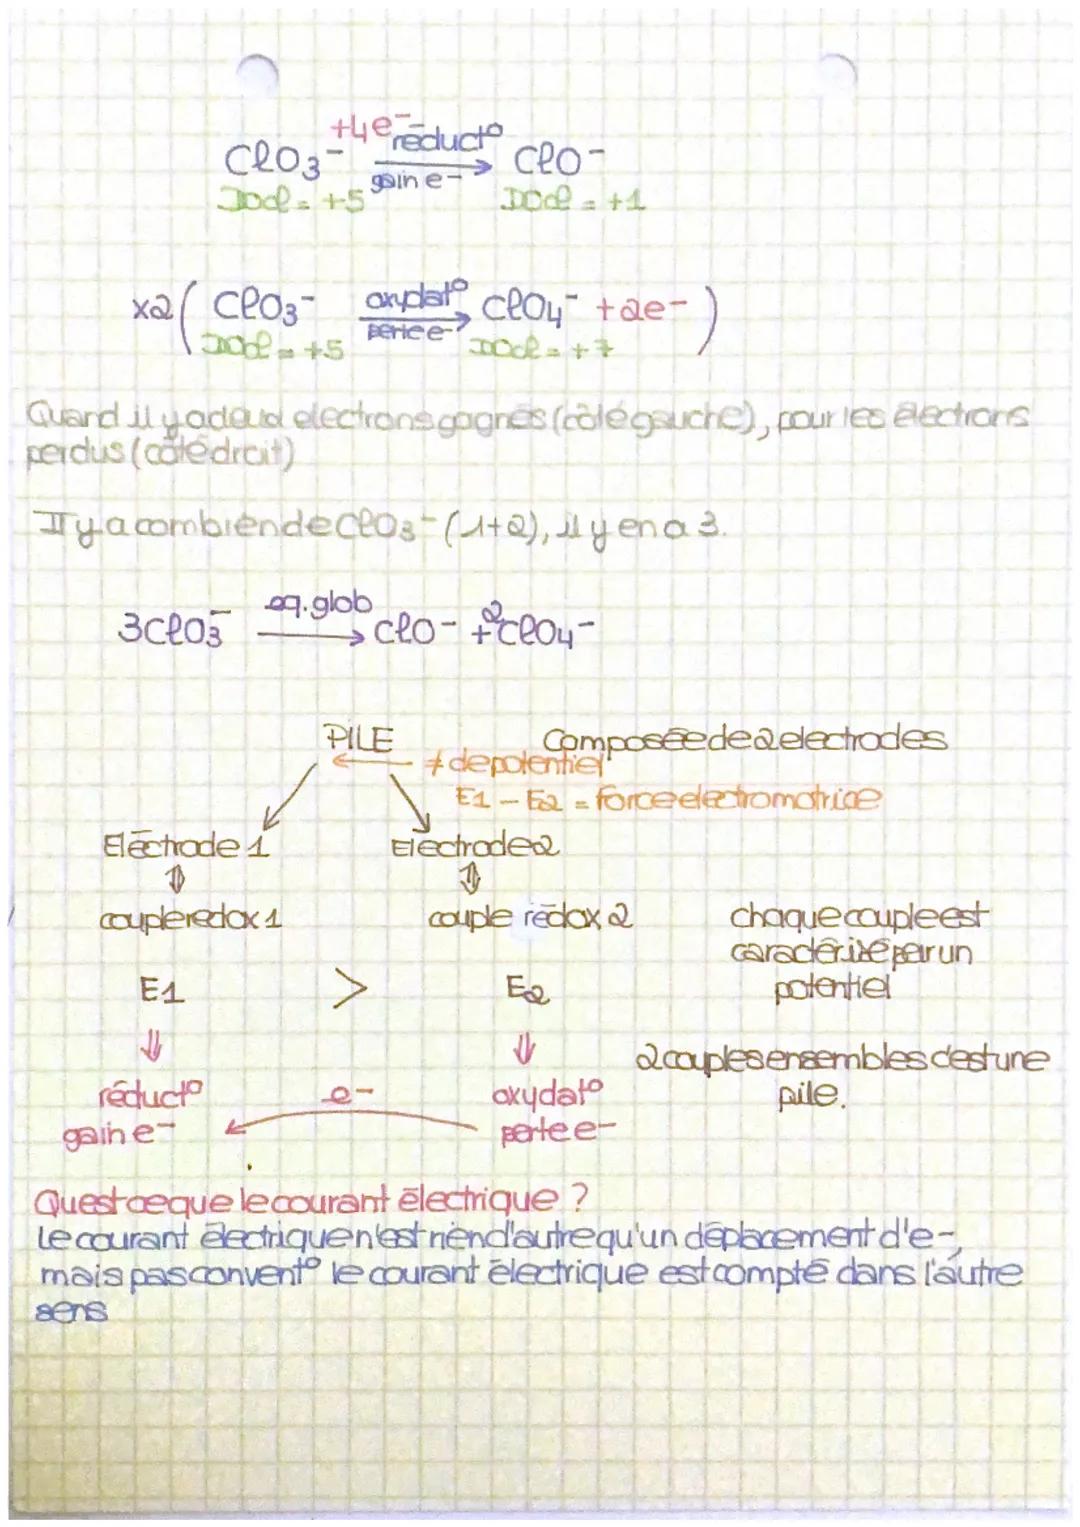 +4e-
ClO3- réduct° ClO-
gain e-
DOCl = +5 DOCl = +1
x2 ( ClO3- oxydat° ClO4- + 2e- )
perte e-
DOCl = +5 DOCl = +7
Quand il y a deux electrons gagnés (côté gauche), pour les électrons
perdus (côté droit)
Il y a combien de ClO3- (1+2), il y en a 3.
3ClO3- eq.glob ClO- + 2ClO4-
PILE Composée de 2 electrodes
≠ de potentiel
E1 - E2 = force electromotrice
Eléctrode 1 Electrode 2
couple redox 1 couple rédox 2 chaque couple est
caractérisé par un
E1 > E2 potentiel
⇓ ⇓ 2 couples ensembles c'est une
réduct° e- oxydat° pile.
gain e- perte e-
Quest ce que le courant électrique ?
Le courant électrique n'est rien d'autre qu'un déplacement d'e-,
mais pas convent° le courant électrique est compté dans l'autre
sens